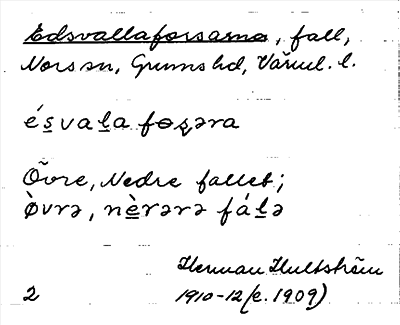 Edsvallaforsarna, fall,
Norsan, Grums hd, Värml. l.
é̱sva̱ḻa fo̱ʂəra
Övre, Nedre fallet;
ø̀vrə, nè̱rərə fá̱ḻə
Herman Hultström
2 1910-12 (c. 1909)